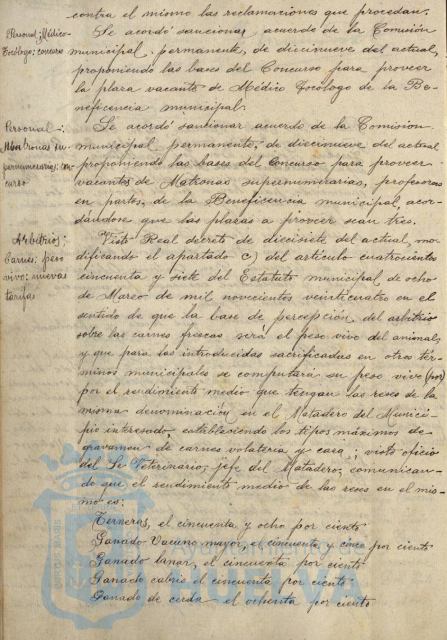 contra el mismo las reclamaciones que procedan.
Personal; Médico-
Tocólogo; concurso
Se acordó sancionar acuerdo de la Comisión
municipal permanente, de diecinueve del actual,
proponiendo las bases del Concurso para proveer
la plaza vacante de Médico Tocólogo de la Be-
neficencia municipal.
Personal:
Matronas su-
pernumerarias; con-
curso
Se acordó sancionar acuerdo de la Comision
municipal permanente, de diecinueve del actual
proponiendo las bases del Concurso para proveer
vacantes de Matronas supernumerarias, profesoras
en partos, de la Beneficencia municipal, acor-
dándose que las plazas a proveer sean tres.
Arbitrios:
Carnes; peso
vivo; nuevas
tarifas
Visto Real decreto de diecisiete del actual, mo-
dificando el apartado c) del articulo cuatrocientos
cincuenta y siete del Estatuto municipal de ocho
de Marzo de mil novecientos veinticuatro en el
sentido de que la base de percepción del arbitrio
sobre las carnes frescas será el peso vivo del animal,
y que para las introducidas sacrificadas en otros tér-
minos municipales se computará su peso vivo (por)
por el rendimiento medio que tengan las reses de la
misma denominación en el Matadero del Munici-
pio interesado, estableciendo los tipos máximos de
gravamen de carnes volateria y caza; visto oficio
del Sr Veterinario, jefe del Matadero, comunican-
do que el rendimiento medio de las reses en el mis-
mo es:
Terneras, el cincuenta y ocho por ciento
Ganado Vacuno mayor, el cincuenta y cinco por ciento
Ganado lanar, el cincuenta por ciento
Ganado cabrio el cincuenta por ciento
Ganado de cerda el ochenta por ciento
Ayuntamiento de
HUELVA